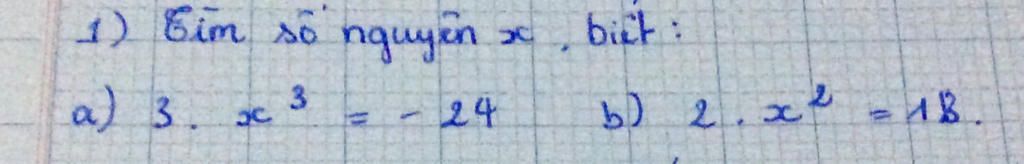 1) Tìm số nguyên x, biết:
a) 3 . x³ = - 24 b) 2 . x² = 18.